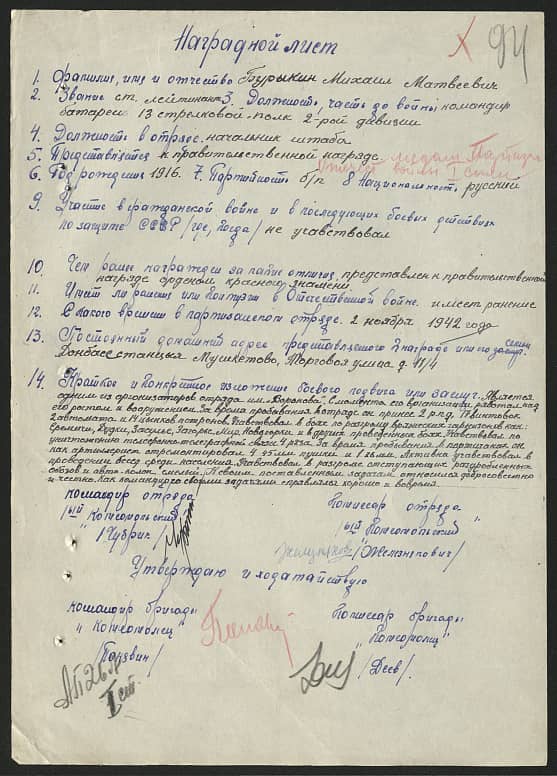 Наградной лист
X 94
1. Фамилия, имя и отчество Бурыкин Михаил Матвеевич
2. Звание ст. лейтенант 3. Должность, часть до войны командир
батареи 13 стрелковой полк 2-рой дивизии
4. Должность в отряде. начальник штаба
5. Представляется к правительственной награде
медали
войны I степени
6. Год рождения 1916. 7. Партийность б/п 8 Национальность. русский
9. Участие в гражданской войне и в последующих боевых действиях
по защите СССР /где, когда/ не учавствовал
10. Чем ранее награжден за какие отличия, представлен к правительственной
награде орденом красного знамени.
11. Имеет ли ранения или контузии в Отечественной войне. имеет ранение
12. С какого времени в партизанском отряде. 2 ноября 1942 года
13. Постоянный домашний адрес представляемого к награде или его семьи
Донбасс станция Мушкетово, Торговая улица д 11/4
14. Краткое и конкретное изложение боевого подвига или заслуг. Является
одним из организаторов отряда им. Воранова. С момента его организации работал над
его ростом и вооружением. За время пребывания в отряде он принес 2 р.п.д. 17 винтовок
2 автомата и 14 ящиков патронов. Учавствовал в боях по разгрому вражеских гарнизонов как:
и в других проведенных боях. Учавствовал по
уничтожению телефонно-телеграфной связи 4 раза. За время пребывания в партизанах он
как артилерист отремонтировал 4 45 мм пушки и 1 76 мм. Активно учавствовал в
проведении бесед среди населения. Учавствовал в разгроме отступающих
обозов и авто-колон. смелый. К своим поставленным задачам относился добросовестно
и честно. Как командир со своими задачами справлялся хорошо и вовремя.
Командир отряда Комиссар отряда
"1ый Комсомольский" "1ый Комсомольский"
/Чубрик/ /Железнякович/
Утверждаю и ходатайствую
Командир бригады Комиссар бригады
"Комсомолец" "Комсомолец"
/Банзвин/ /Деев/
I ст.